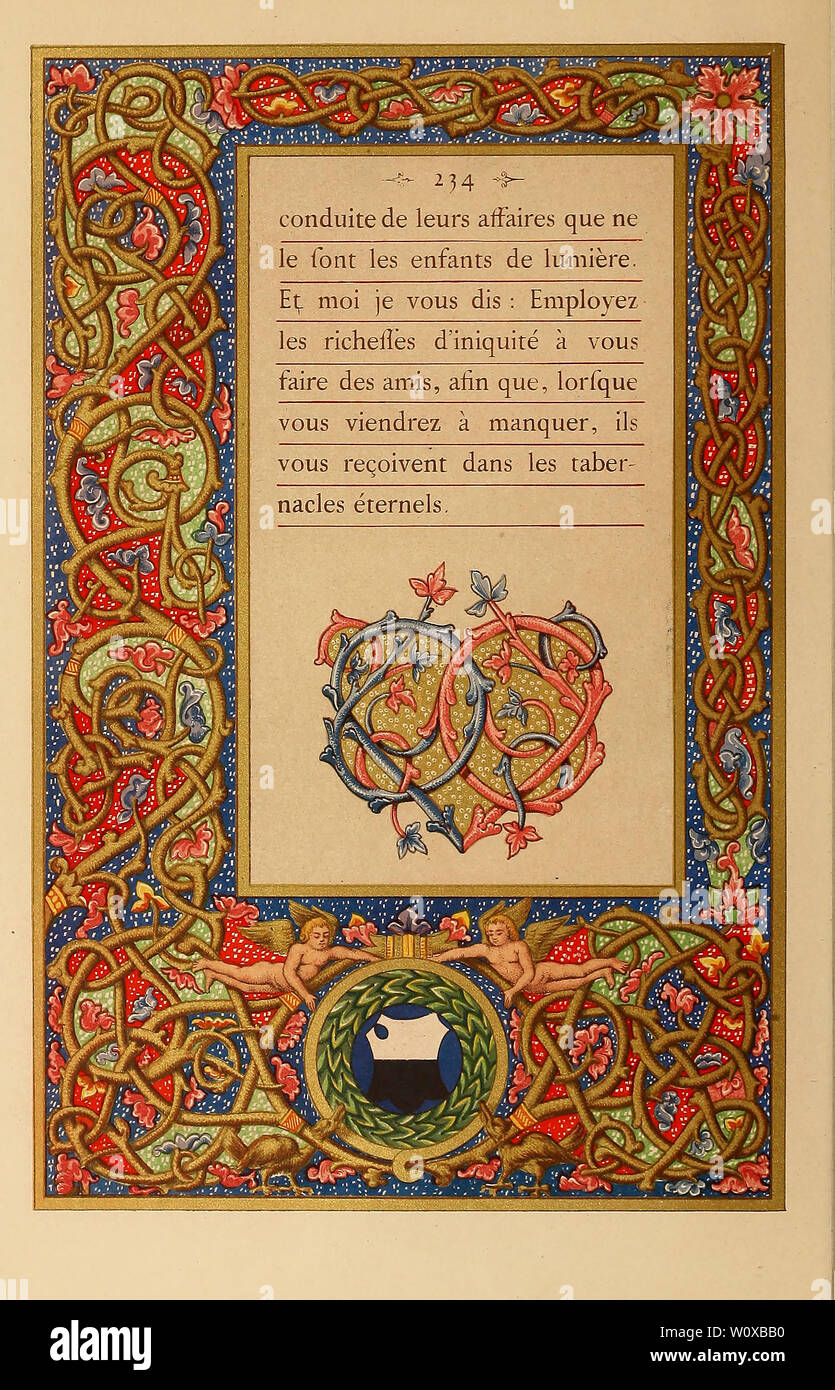 234
conduite de leurs affaires que ne
le ſont les enfants de lumière.
Et moi je vous dis : Employez
les richeſſes d'iniquité à vous
faire des amis, afin que, lorſque
vous viendrez à manquer, ils
vous reçoivent dans les taber-
nacles éternels.
alamy
Image ID: W0XBB0
www.alamy.com